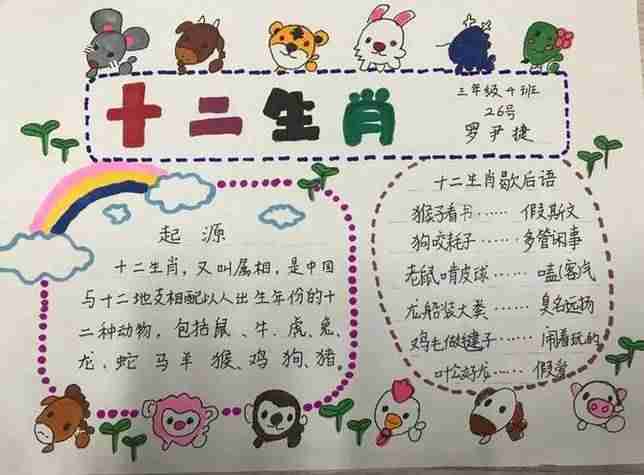 十二生肖
三年级4班
26号
罗尹捷
起源
十二生肖，又叫属相，是中国
与十二地支相配以人出生年份的十
二种动物，包括鼠、牛、虎、兔、
龙、蛇 马 羊 猴、鸡 狗、猪.
十二生肖歇后语
猴子看书…… 假斯文
狗咬耗子…… 多管闲事
老鼠啃皮球…… 嗑(客)气
龙船装大粪…… 臭名远扬
鸡毛做毽子…… 闹着玩的
叶公好龙…… 假爱